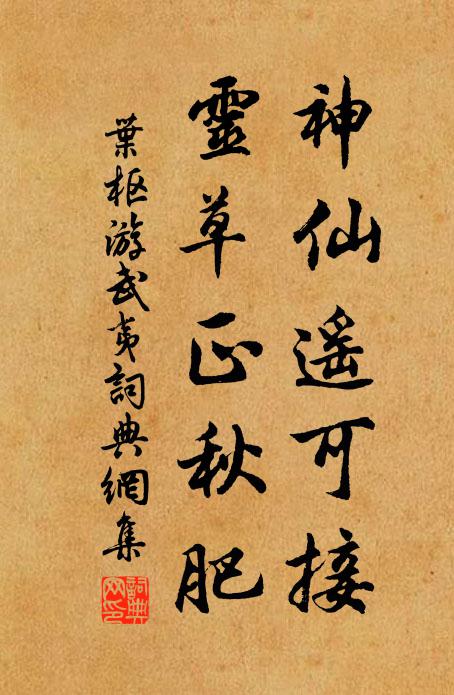 神仙遥可接
靈草正秋肥
葉枢游武夷詞典網集
詞典網印